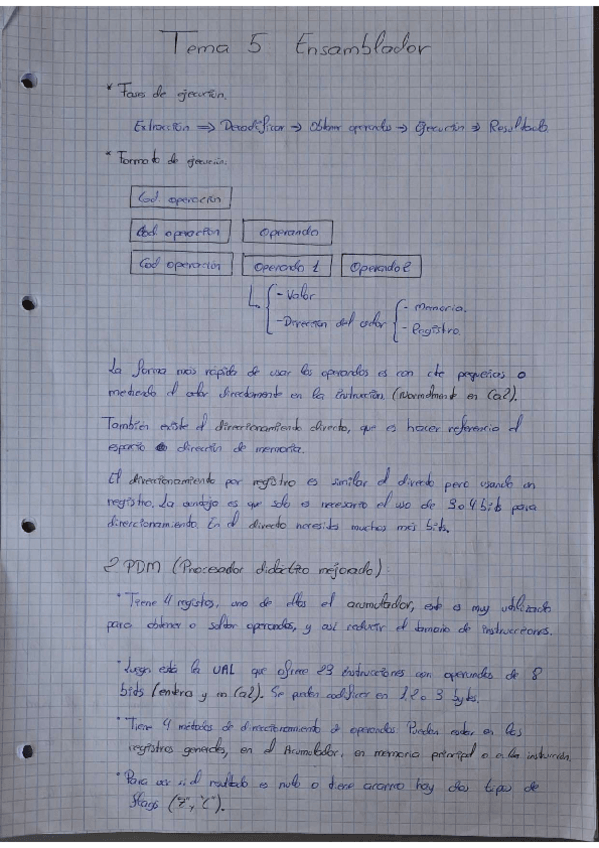 Tema 5 Ensamblador
* Fases de ejecución.
Extracción => Decodificar → Obtener operando → Ejecución → Resultado
* Formato de ejecución.
Cod. operación
Cod. operación Operando
Cod operación Operando 1 Operando 2
- Valor
- Dirección del valor - Memoria.
- Registro.
La forma más rápida de usar los operandos es con cte pequeñas o
metiendo el valor directamente en la instrucción (Normalmente en Ca2).
También existe el direccionamiento directo, que es hacer referencia al
espacio dirección de memoria.
El direccionamiento por registro es similar al directo pero usando un
registro. La ventaja es que solo es necesario el uso de 3 o 4 bits para
direccionamiento. En el directo necesitas muchos más bits.
2 PDM (Procesador didáctico mejorado)
* Tiene 4 registros, uno de ellos el acumulador, este es muy utilizado
para obtener o soltar operandos, y así reducir el tamaño de instrucciones.
* Luego está la UAL que ofrece 23 instrucciones con operandos de 8
bits (enteros y en Ca2). Se pueden codificar en 1, 2 o 3 bytes.
* Tiene 4 métodos de direccionamiento de operandos Pueden estar en los
registros generales, en el Acumulador, en memoria principal o en la instrucción.
* Para ver si el resultado es nulo o tiene acarreo hay dos tipos de
flags ("Z", "C").